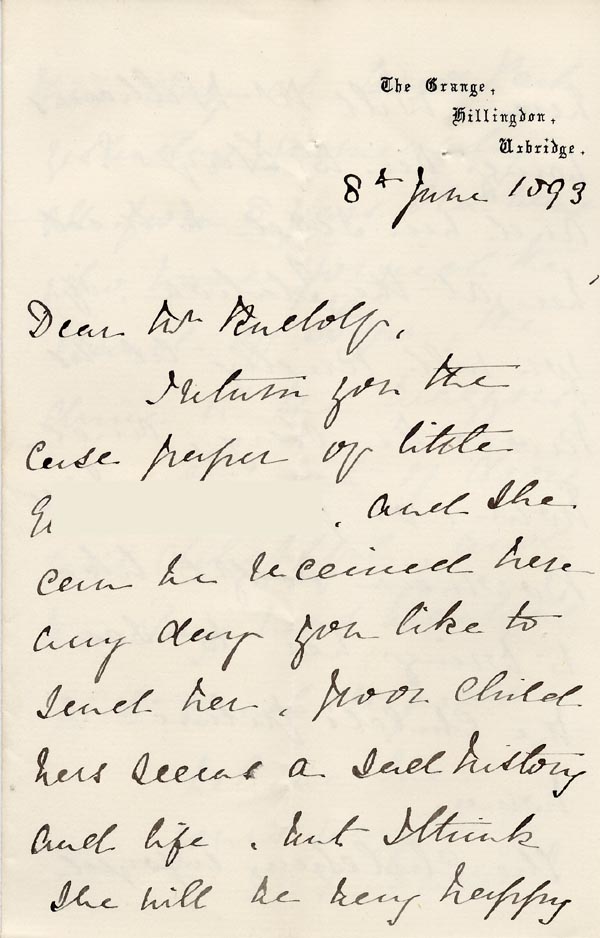 The Grange,
Hillingdon,
Uxbridge.
8th June 1893
Dear Mr Rudolf,
I return you the
case paper of little
and she
can be received here
any day you like to
send her, poor child
hers seems a sad history
and life, but I think
she will be very happy